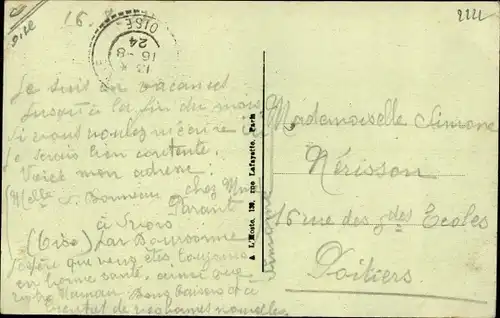 16
OISE
13
16-8
24
Je suis en vacances
jusqu'à la fin du mois
si vous voulez m'écrire
je serais bien contente.
Voici mon adresse
Melle S. Bonneau chez Mme
Parant
à
(Oise) par
J'espère que vous êtes toujours
en bonne santé, ainsi que
votre Maman. Bons baisers et à
bientôt de vos bonnes nouvelles.
Simone
A L'Hoste, 139, rue Lafayette, Paris
Mademoiselle Simone
Nérisson
16 rue des gdes Ecoles
Poitiers